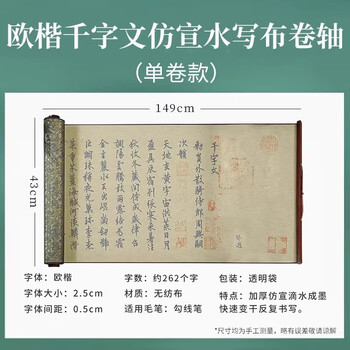 欧楷千字文仿宣水写布卷轴
(单卷款)
149cm
43cm
千字文
次韻
天地玄黄宇宙洪荒日月
盈昃辰宿列張寒來暑往
秋收冬藏閏餘成歲律吕
調陽雲騰致雨露結爲霜
金生麗水玉出崑岡劍號
巨闕珠稱夜光菓珎李柰
菜重芥薑海鹹河淡鱗
字体：欧楷
字数：约262个字
包装：透明袋
字体大小：2.5cm
材质：无纺布
特点：加厚仿宣滴水成墨
快速变干反复书写。
字体间距：0.5cm
适用毛笔：勾线笔
*尺寸均为手工测量，略有误差敬请谅解